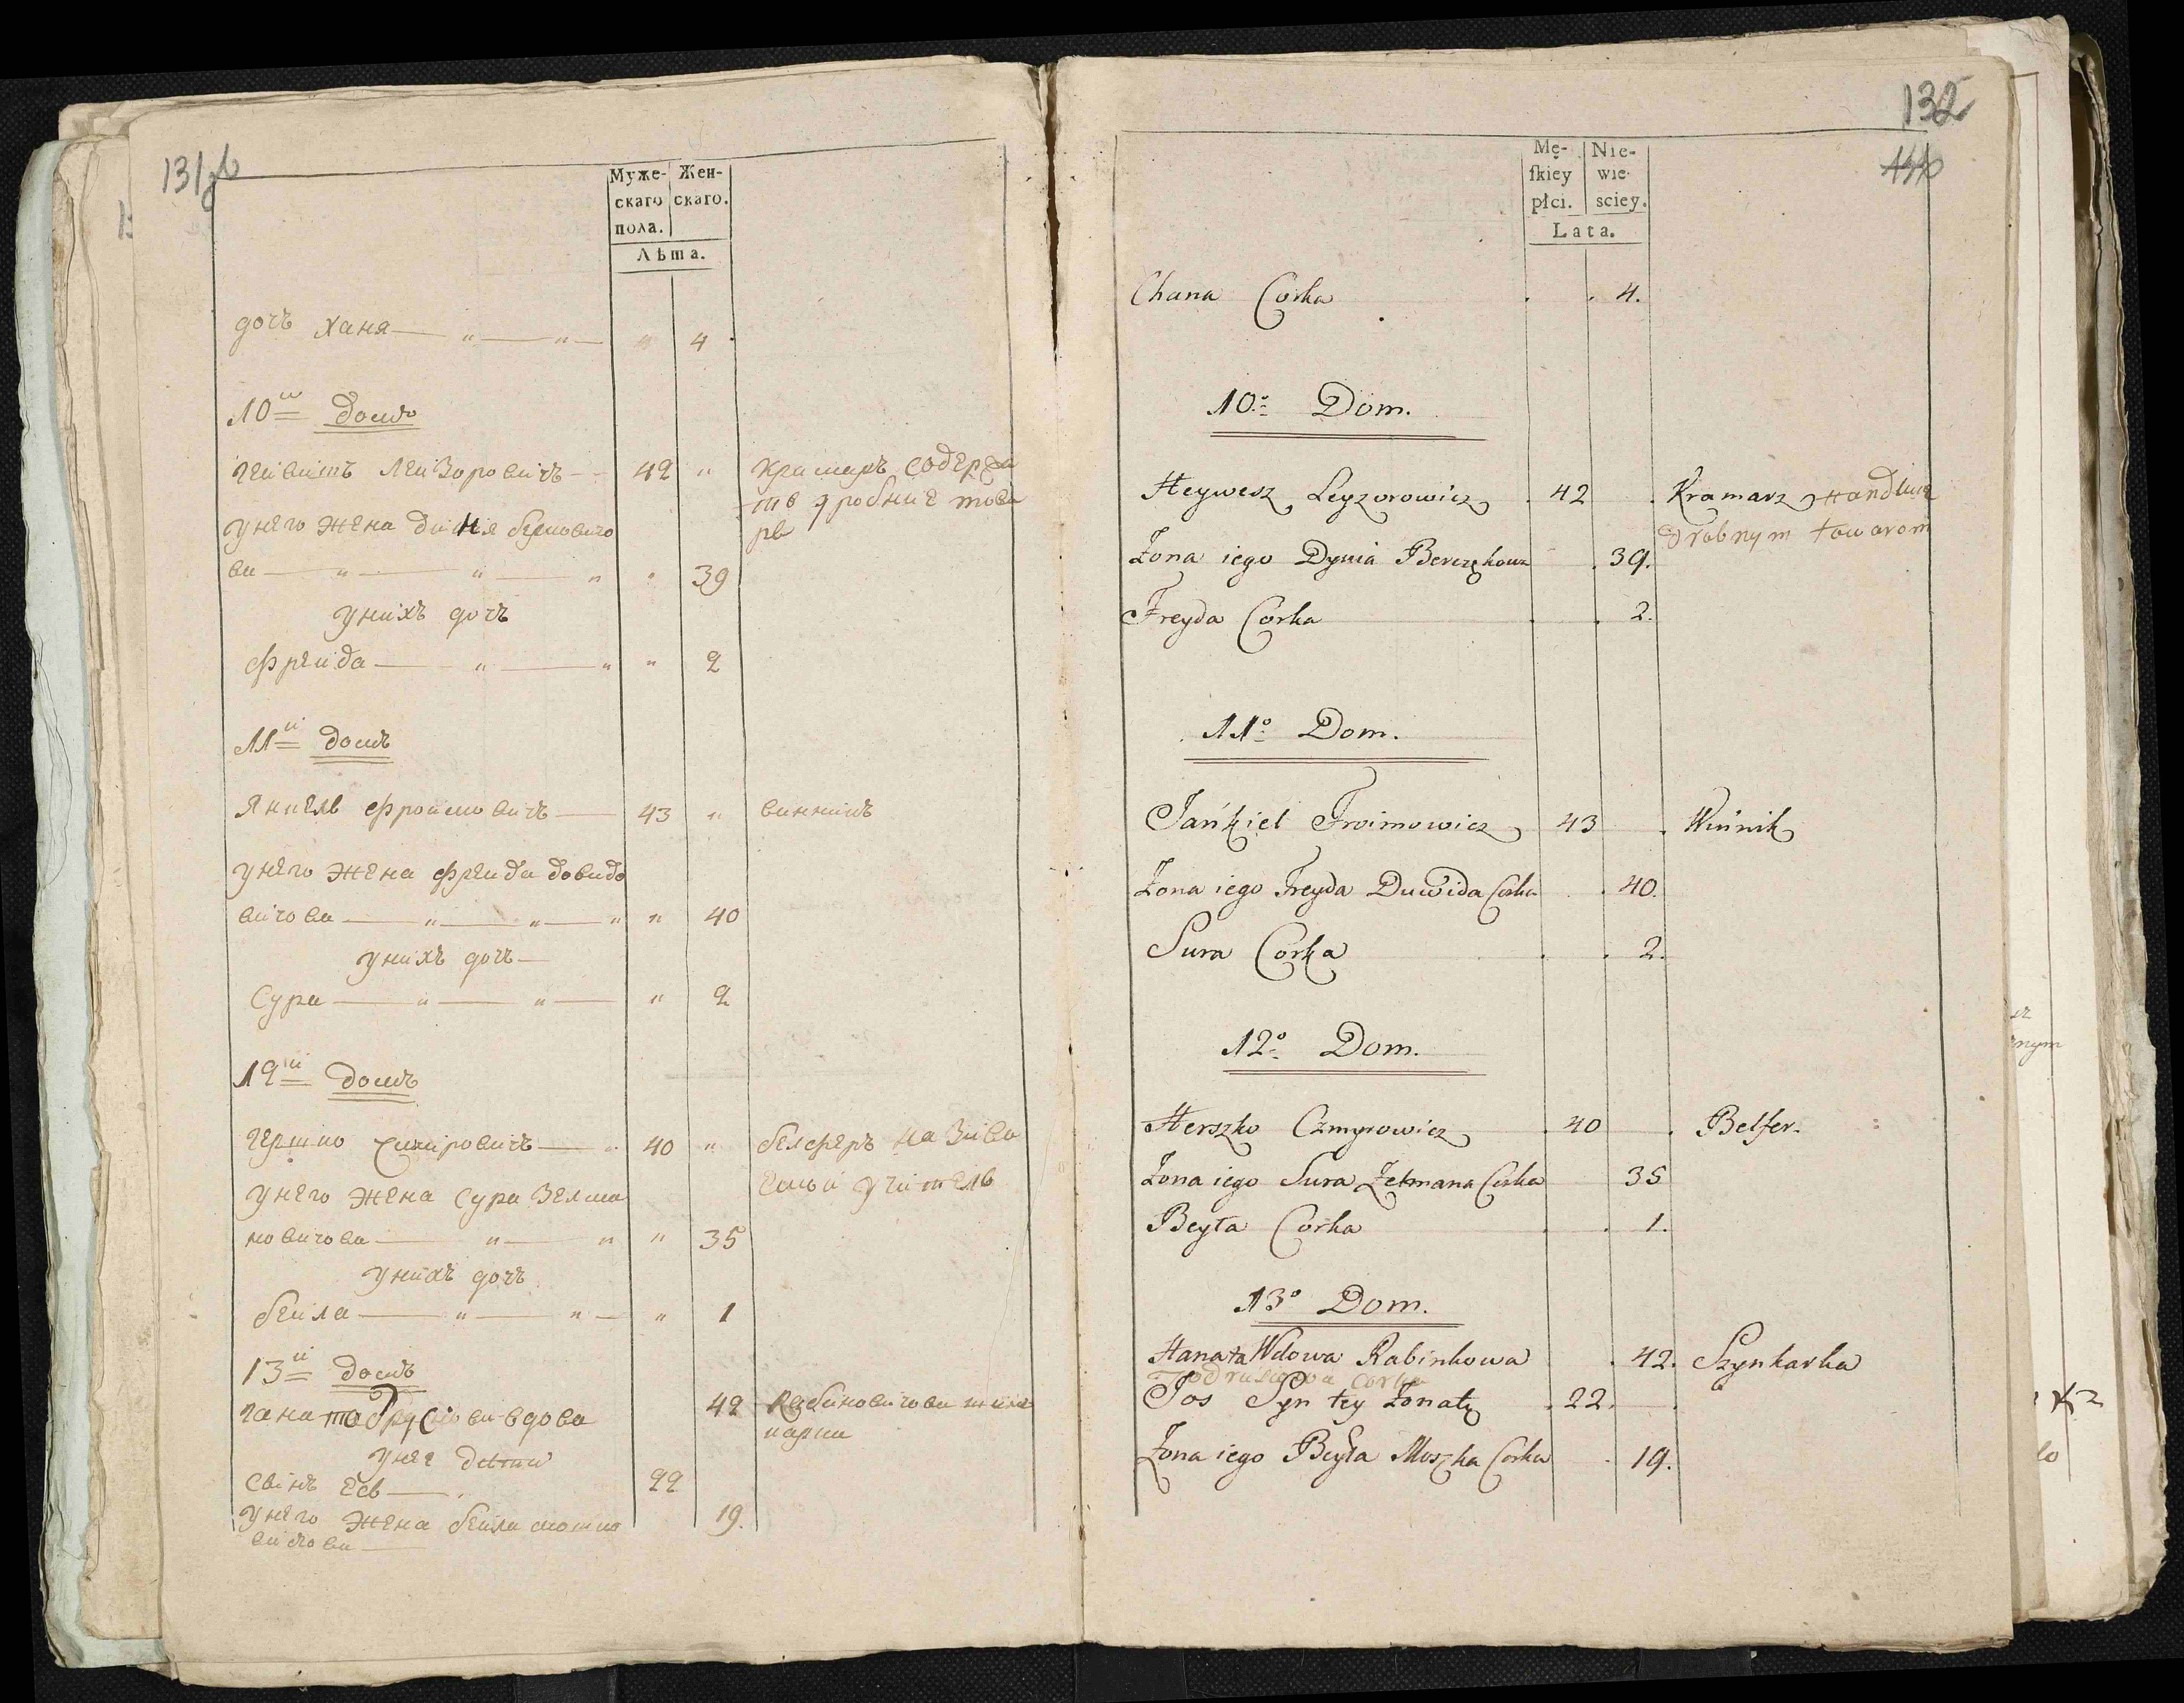 131об
Муже-
скаго
пола.
Жен-
скаго.
Лѣта.
дочъ Ханя 4
10й домъ
42
крамаръ содержа
тъ дробние това
ры
унего жена
ва 39
унихъ дочъ
Фреида 2
11й домъ
Янкель Фроимовичъ 43 винникъ
унего жена Фреида довидо
вичова 40
унихъ дочъ
Сура 2
12й домъ
Гершко 40 белферъ назива
емы учитель
унего жена Сура Зелма
новичова 35
унихъ дочъ
беила 1
13й домъ
вдова 42
унее дети
синъ Есь 22
унего жена беила мошко
вичова 19.
132
Mę-
ſkiey
płci.
Nie-
wie-
sciey.
Lata.
Chana Corka 4.
10o Dom.
Heywesz Leyzorowicz 42 Kramarz Handluie
drobnym towarom
Żona iego Dynia 39.
Freyda Corka 2.
11o Dom.
Jańkiel Froimowicz 43 Winnik
Żona iego Freyda Duwida Corka 40.
Sura Corka 2.
12o Dom.
Herszko Czmyrowicz 40 Belfer.
Żona iego Sura Zelmana Corka 35
Beyła Corka 1.
13o Dom.
Hanata Wdowa Rabinkowa 42. Szynkarka
Corka
Jos Syn tey Żonaty 22.
Żona iego Beyła Moszka Corka 19.